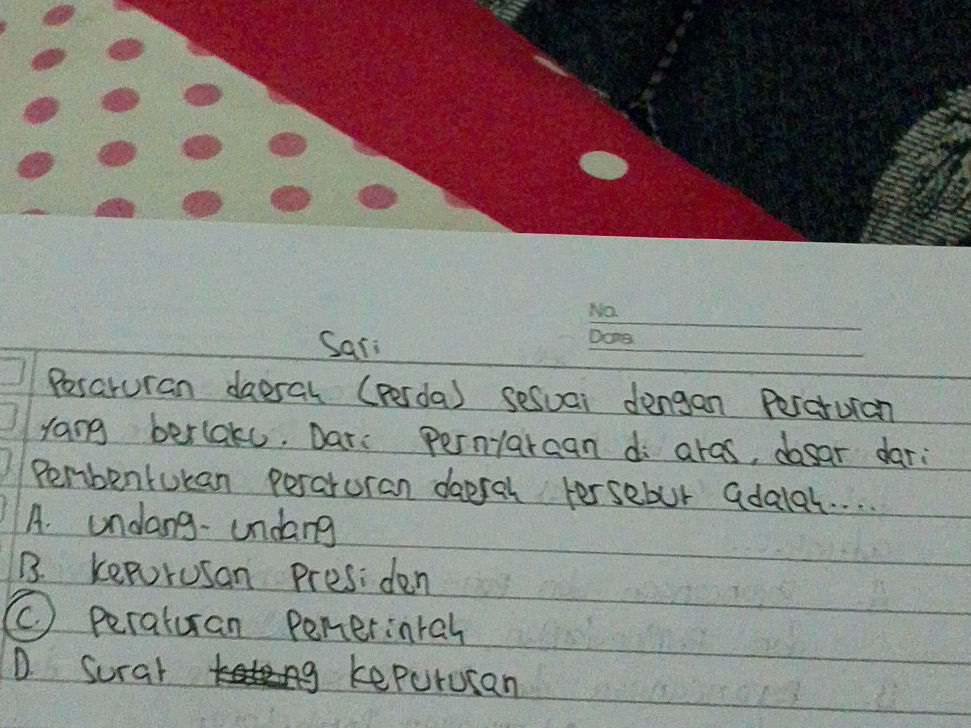 No.
Date
Sari
Peraturan daerah (Perda) sesuai dengan Peraturan
yang berlaku. Dari Pernyataan di atas, dasar dari
Pembentukan Peraturan daerah tersebut adalah....
A. undang-undang
B. keputusan Presiden
C. Peraturan Pemerintah
D. Surat keputusan